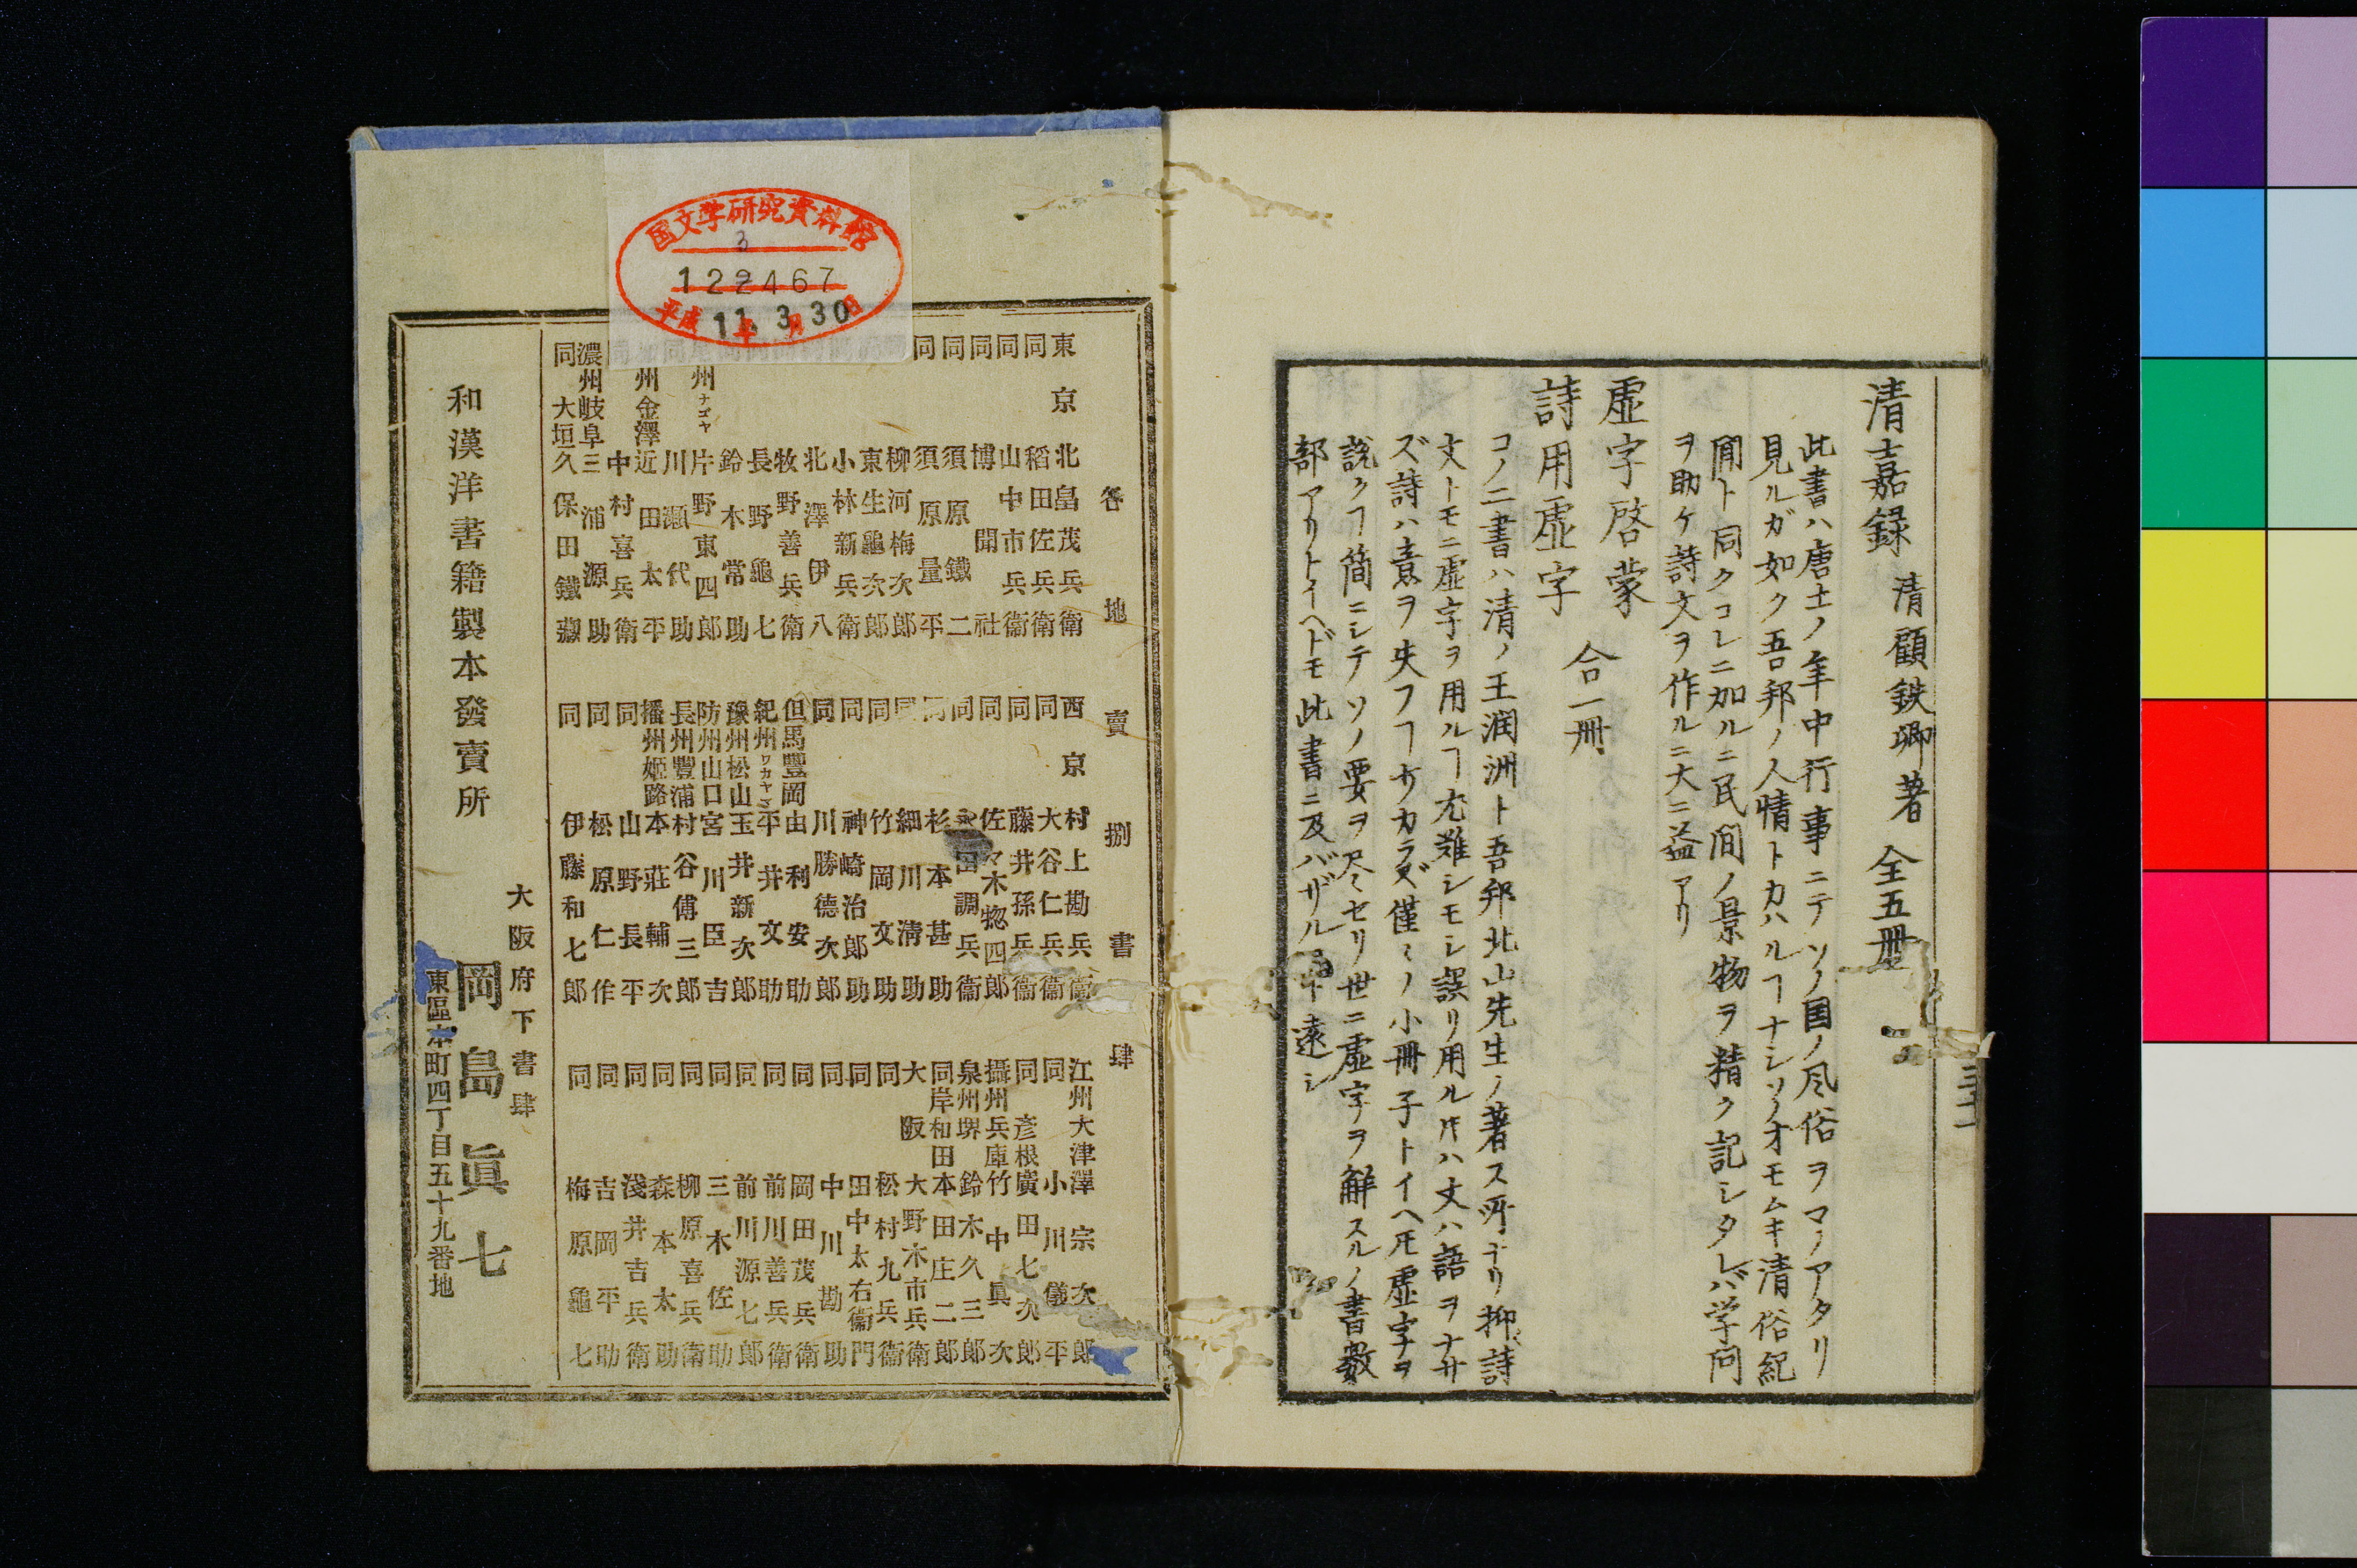 清嘉録 清顧鉄卿著 全五冊
此書ハ唐土ノ年中行事ニテソノ国ノ風俗ヲマノアタリ
見ルガ如ク吾邦ノ人情トカハルヿナシソノオモムキ清俗紀
聞ト同クコレニ加ルニ民間ノ景物ヲ精ク記シタレバ学問
ヲ助ケ詩文ヲ作ルニ大ニ益アリ
虚字啓蒙
詩用虚字
合一冊
コノ二書ハ清ノ王潤洲ト吾邦北山先生ノ著ス所ナリ抑詩
文トモニ虚字ヲ用ルヿ尤難シモシ誤リ用ル片ハ文ハ語ヲナサ
ズ詩ハ意ヲ失フヿ少カラズ僅ミノ小冊子トイヘ𪜈虚字ヲ
説クヿ簡ニシテソノ要ヲ尽セリ世ニ虚字ヲ解スルノ書数
部アリトイヘドモ此書ニ及バザルヿ遠シ
三十二
国文学研究資料館
3
122467
平成11年3月30日
各地賣捌書肆
東京 北畠茂兵衛
同 稻田佐兵衛
同 山中市兵衞
同 博聞社
同 須原鐵二
同 須原量平
柳河梅次郎
東生龜次郎
小林新兵衛
北澤伊八
牧野善兵衛
長野龜七
鈴木常助
州ナゴヤ 片野東四郎
川瀬代助
州金澤 近田太平
中村喜兵衛
濃州岐阜 三浦源助
同大垣 久保田鐵藏
西京 村上勘兵衞
同 大谷仁兵衞
同 藤井孫兵衞
同 佐々木惣四郎
同 田調兵衞
同 杉本甚助
細川淸助
同 竹岡文助
同 神崎治郎助
同 川勝德次郎
但馬豐岡 由利安助
紀州ワカヤマ 平井文助
豫州松山 玉井新次郎
防州山口 宮川臣吉
長州豐浦 村谷傅三郎
播州姫路 本莊輔次
同 山野長平
同 松原仁作
同 伊藤和七郎
江州大津 澤宗次郎
同 小川儀平
同彦根 廣田七次郎
攝州兵庫 竹中眞次
泉州堺 鈴木久三郎
同岸和田 本田庄二郎
大阪 大野木市兵衛
同 松村九兵衞
同 田中太右衞門
同 中川勘助
同 岡田茂兵衛
同 前川善兵衛
同 前川源七郎
同 三木佐助
同 柳原喜兵衛
同 森本太助
同 淺井吉兵衛
同 吉岡平助
同 梅原龜七
大阪府下書肆
和漢洋書籍製本發賣所 岡島眞七
東區本町四丁目五十九番地